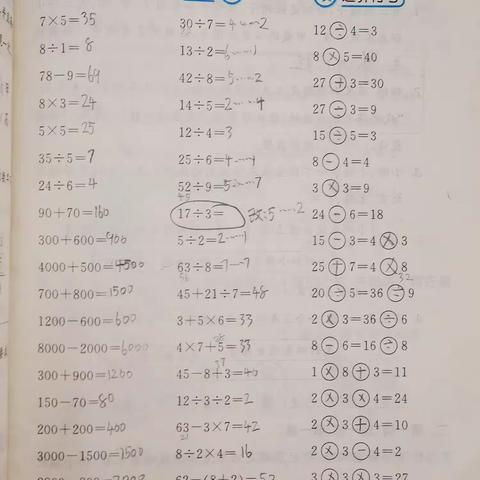 7×5=35
8÷1=8
78-9=69
8×3=24
5×5=25
35÷5=7
24÷6=4
90+70=160
300+600=900
4000+500=4500
700+800=1500
1200-600=600
8000-2000=6000
300+900=1200
150-70=80
200+200=400
3000-1500=1500
30÷7=4……2
13÷2=6……1
42÷8=5……2
14÷5=2……4
12÷4=3
25÷6=4……1
52÷9=5……7
45
17÷3= 改:5……2
5÷2=2……1
63÷8=7……7
56
45+21÷7=48
3+5×6=33
28
4×7+5=33
37
45-8+3=40
12÷3÷2=2
63-3×7=42
21
8÷2×4=16
63-(8+2)=53
12÷4=3
8×5=40
27+3=30
27÷3=9
15÷5=3
8-4=4
3×3=9
24-6=18
15-3=4×3
25+7=4×8
32
20÷5=36÷9
2×3=36÷6
8-6=16÷8
1×8+3=11
2×3×4=24
2×3+4=10
2×3-4=2
3×3×3=27